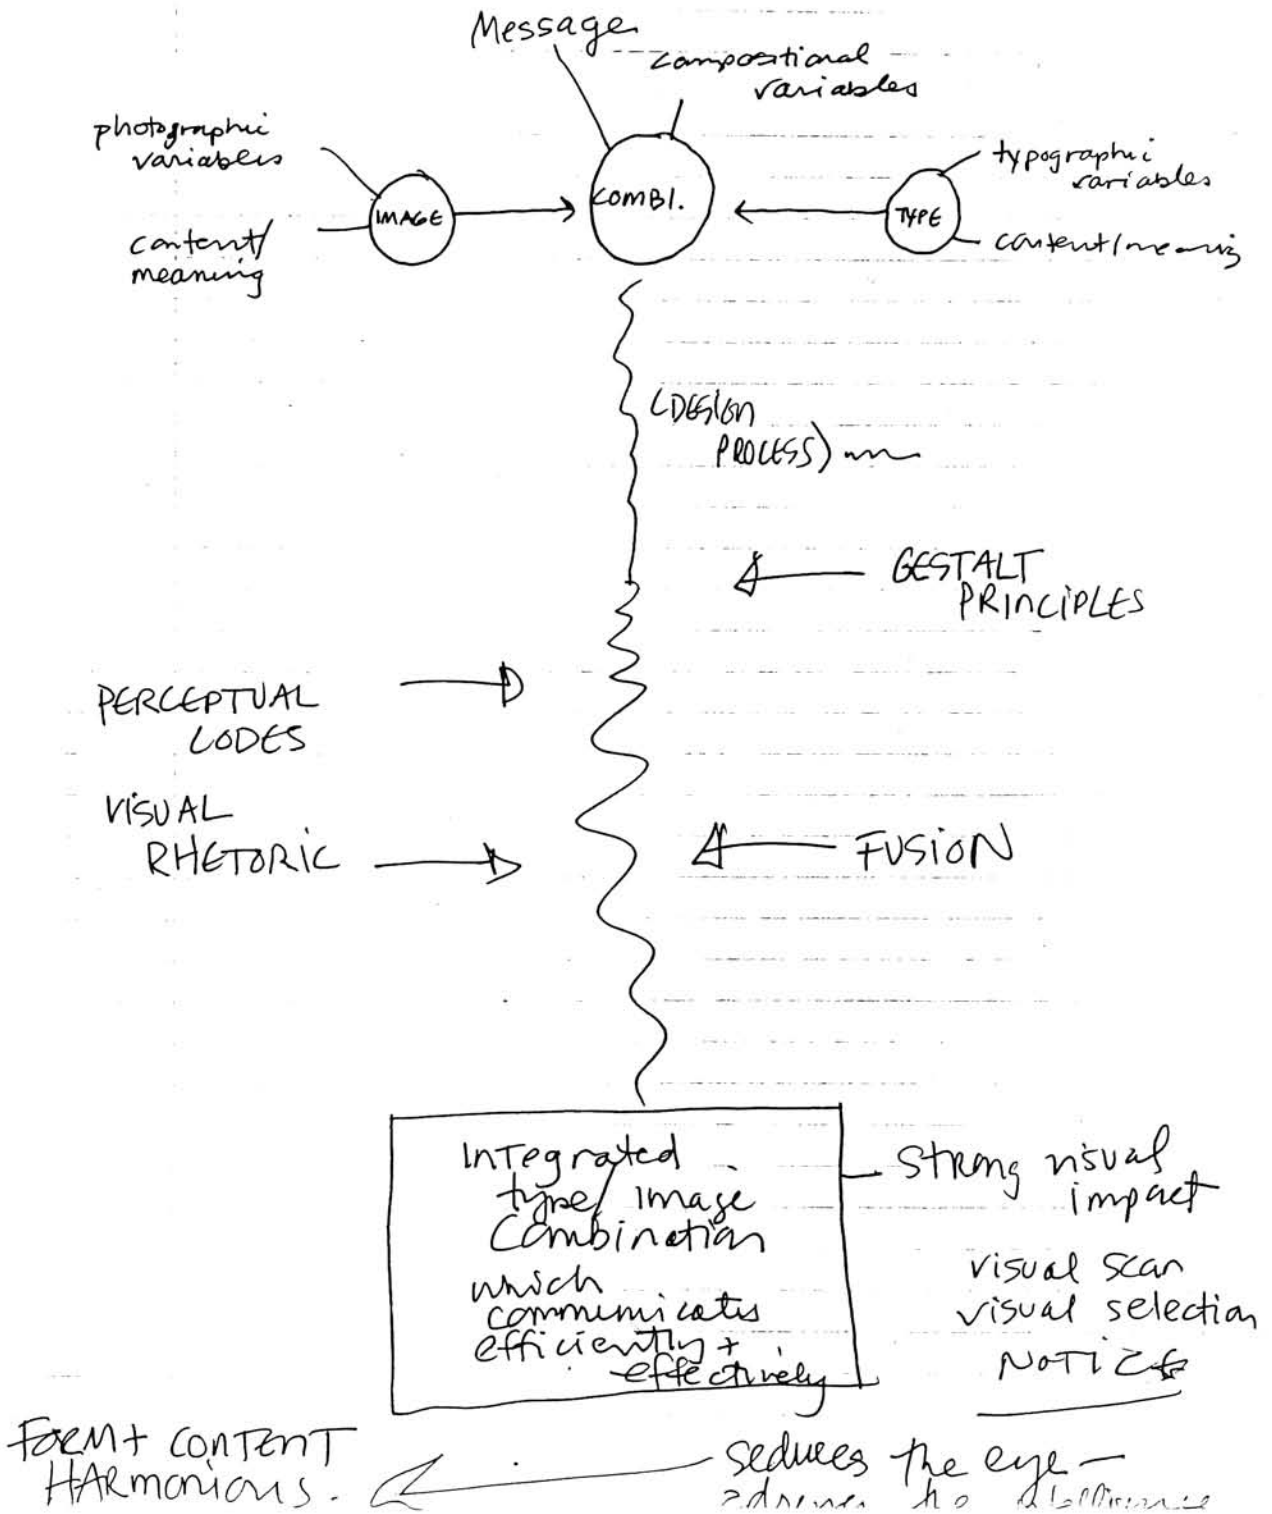 Message
compositional
variables
photographic
variables
typographic
variables
IMAGE
COMBI.
TYPE
content/
meaning
content/meaning
(DESIGN
PROCESS)
GESTALT
PRINCIPLES
PERCEPTUAL
CODES
VISUAL
RHETORIC
FUSION
INTegrated
type/image
Combination
which
communicates
efficiently +
effectively
Strong visual
impact
visual scan
visual selection
NOTICE
FORM + CONTENT
HARmonious.
seduces the eye —